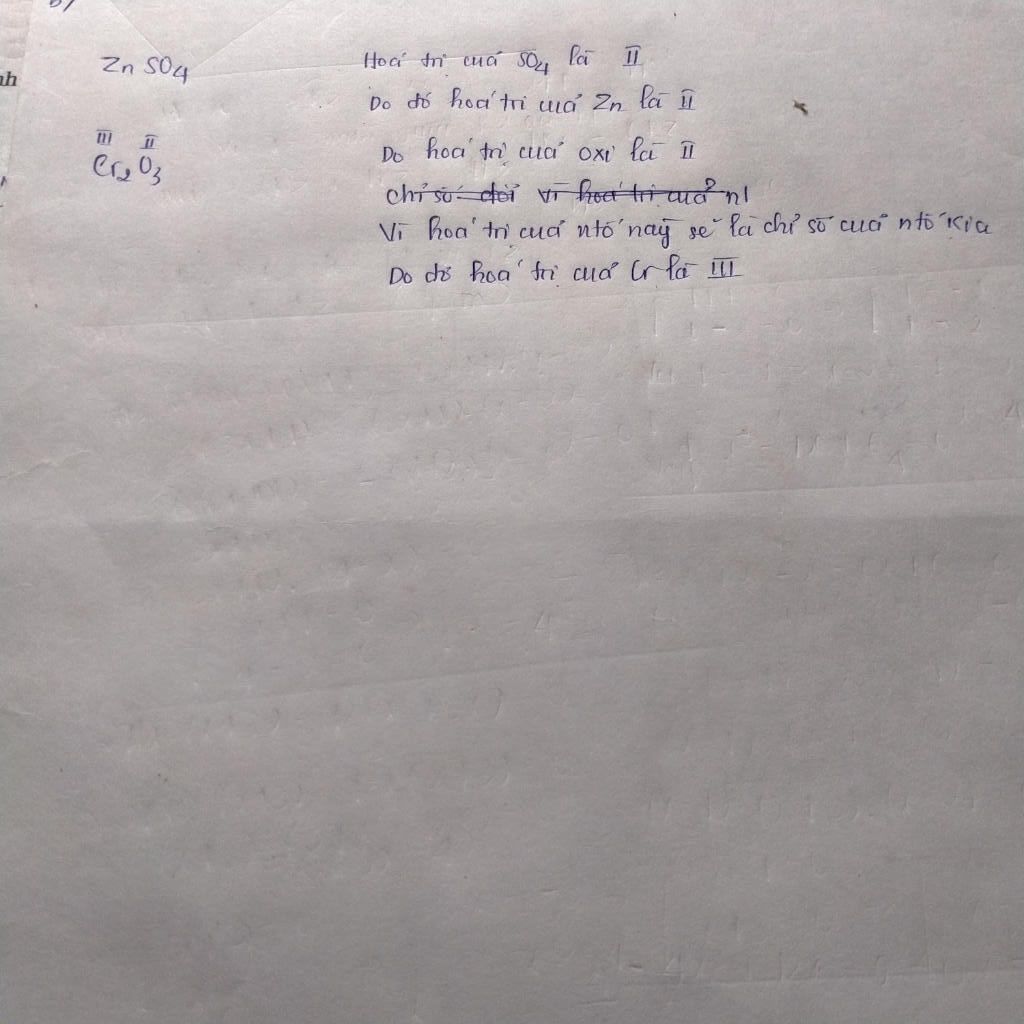 b)
nh
ZnSO4 Hoá trị của SO4 là II
Do đó hoá trị của Zn là II
III II
Cr2O3 Do hoá trị của oxi là II
chỉ số đổi vì hoá trị của n1
Vì hoá trị của ntố này sẽ là chỉ số của ntố kia
Do đó hoá trị của Cr là III